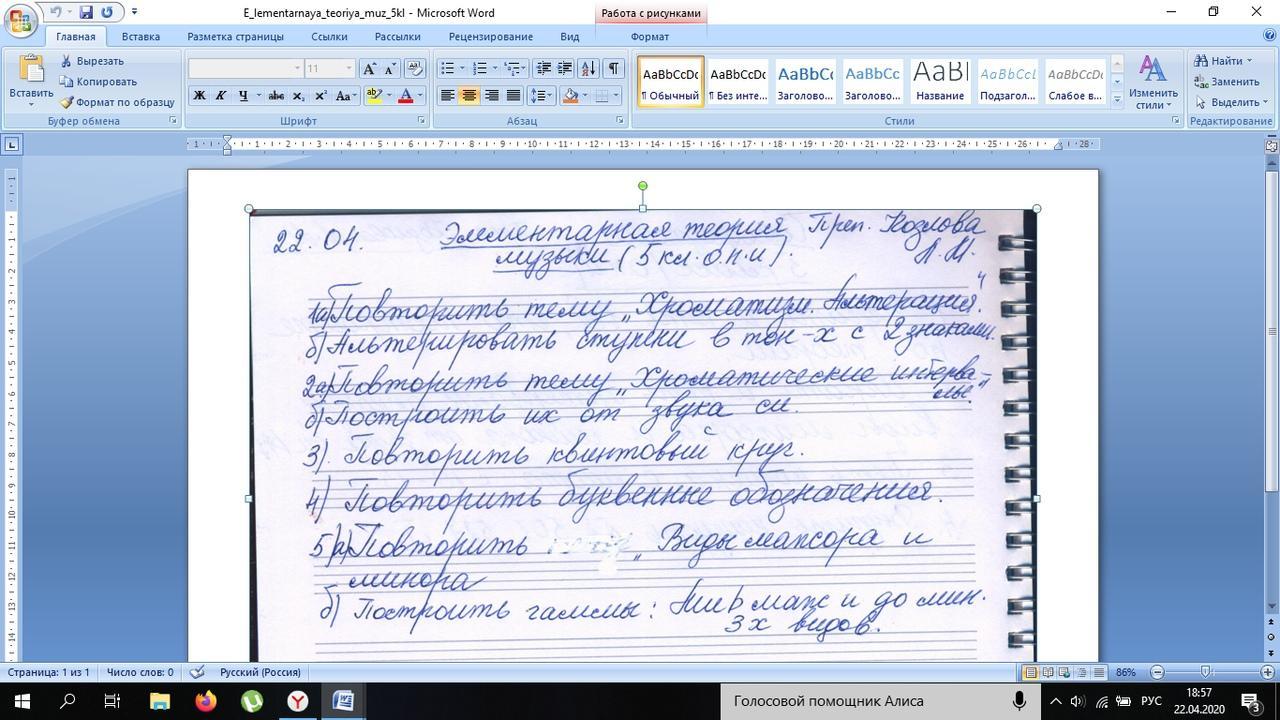 E_lementarnaya_teoriya_muz_5kl - Microsoft Word
Работа с рисунками
Главная Вставка Разметка страницы Ссылки Рассылки Рецензирование Вид Формат
Вставить
Вырезать
Копировать
Формат по образцу
Буфер обмена
11
Ж К Ч abc x₂ x² Aa
Шрифт
Абзац
АаBbCcDc АаBbCcDc АаBbCc АаBbCc АаВ АаBbCcL АаBbCcDc
¶ Обычный ¶ Без инте... Заголово... Заголово... Название Подзагол... Слабое в...
Изменить стили
Стили
Найти
Заменить
Выделить
Редактирование
22.04. Элементарная теория Преп. Козлова
музыки (5 кл. о.п.и). Л.М.
1а) Повторить тему „Хроматизм. Альтерация."
б) Альтерировать ступени в тон-х с 2 знаками.
2а) Повторить тему „Хроматические интерва-
лы."
б) Построить их от звука си.
3) Повторить квинтовый круг.
4) Повторить буквенные обозначения.
5а) Повторить „Виды мажора и
минора
б) Построить гаммы: Ми b маж и до мин.
3х видов.
Страница: 1 из 1 Число слов: 0 Русский (Россия) 86%
Голосовой помощник Алиса
РУС
18:57
22.04.2020
3